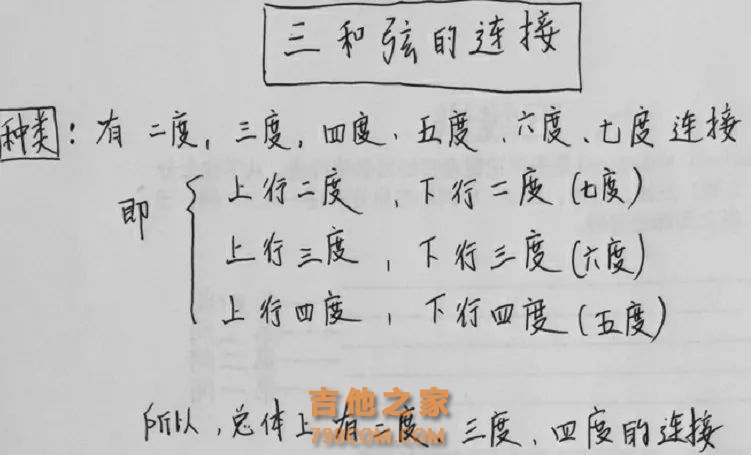 三和弦的连接
种类：有二度，三度，四度、五度、六度、七度连接
即
上行二度，下行二度（七度）
上行三度，下行三度（六度）
上行四度，下行四度（五度）
吉他之家
798COM.COM
所以，总体上有二度、三度、四度的连接